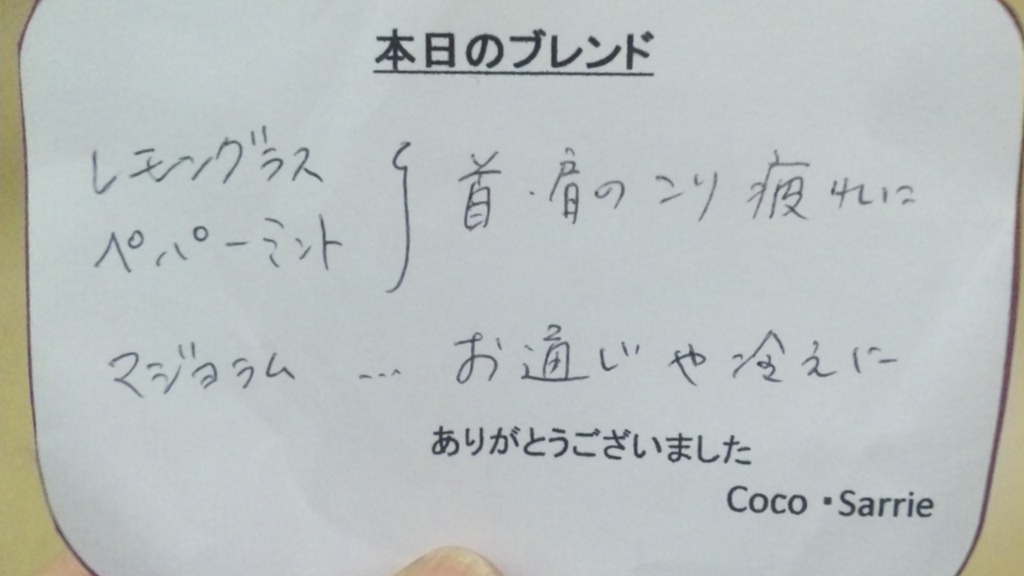 本日のブレンド
レモングラス
ペパーミント } 首・肩のこり疲れに
マジョラム … お通じや冷えに
ありがとうございました
Coco・Sarrie